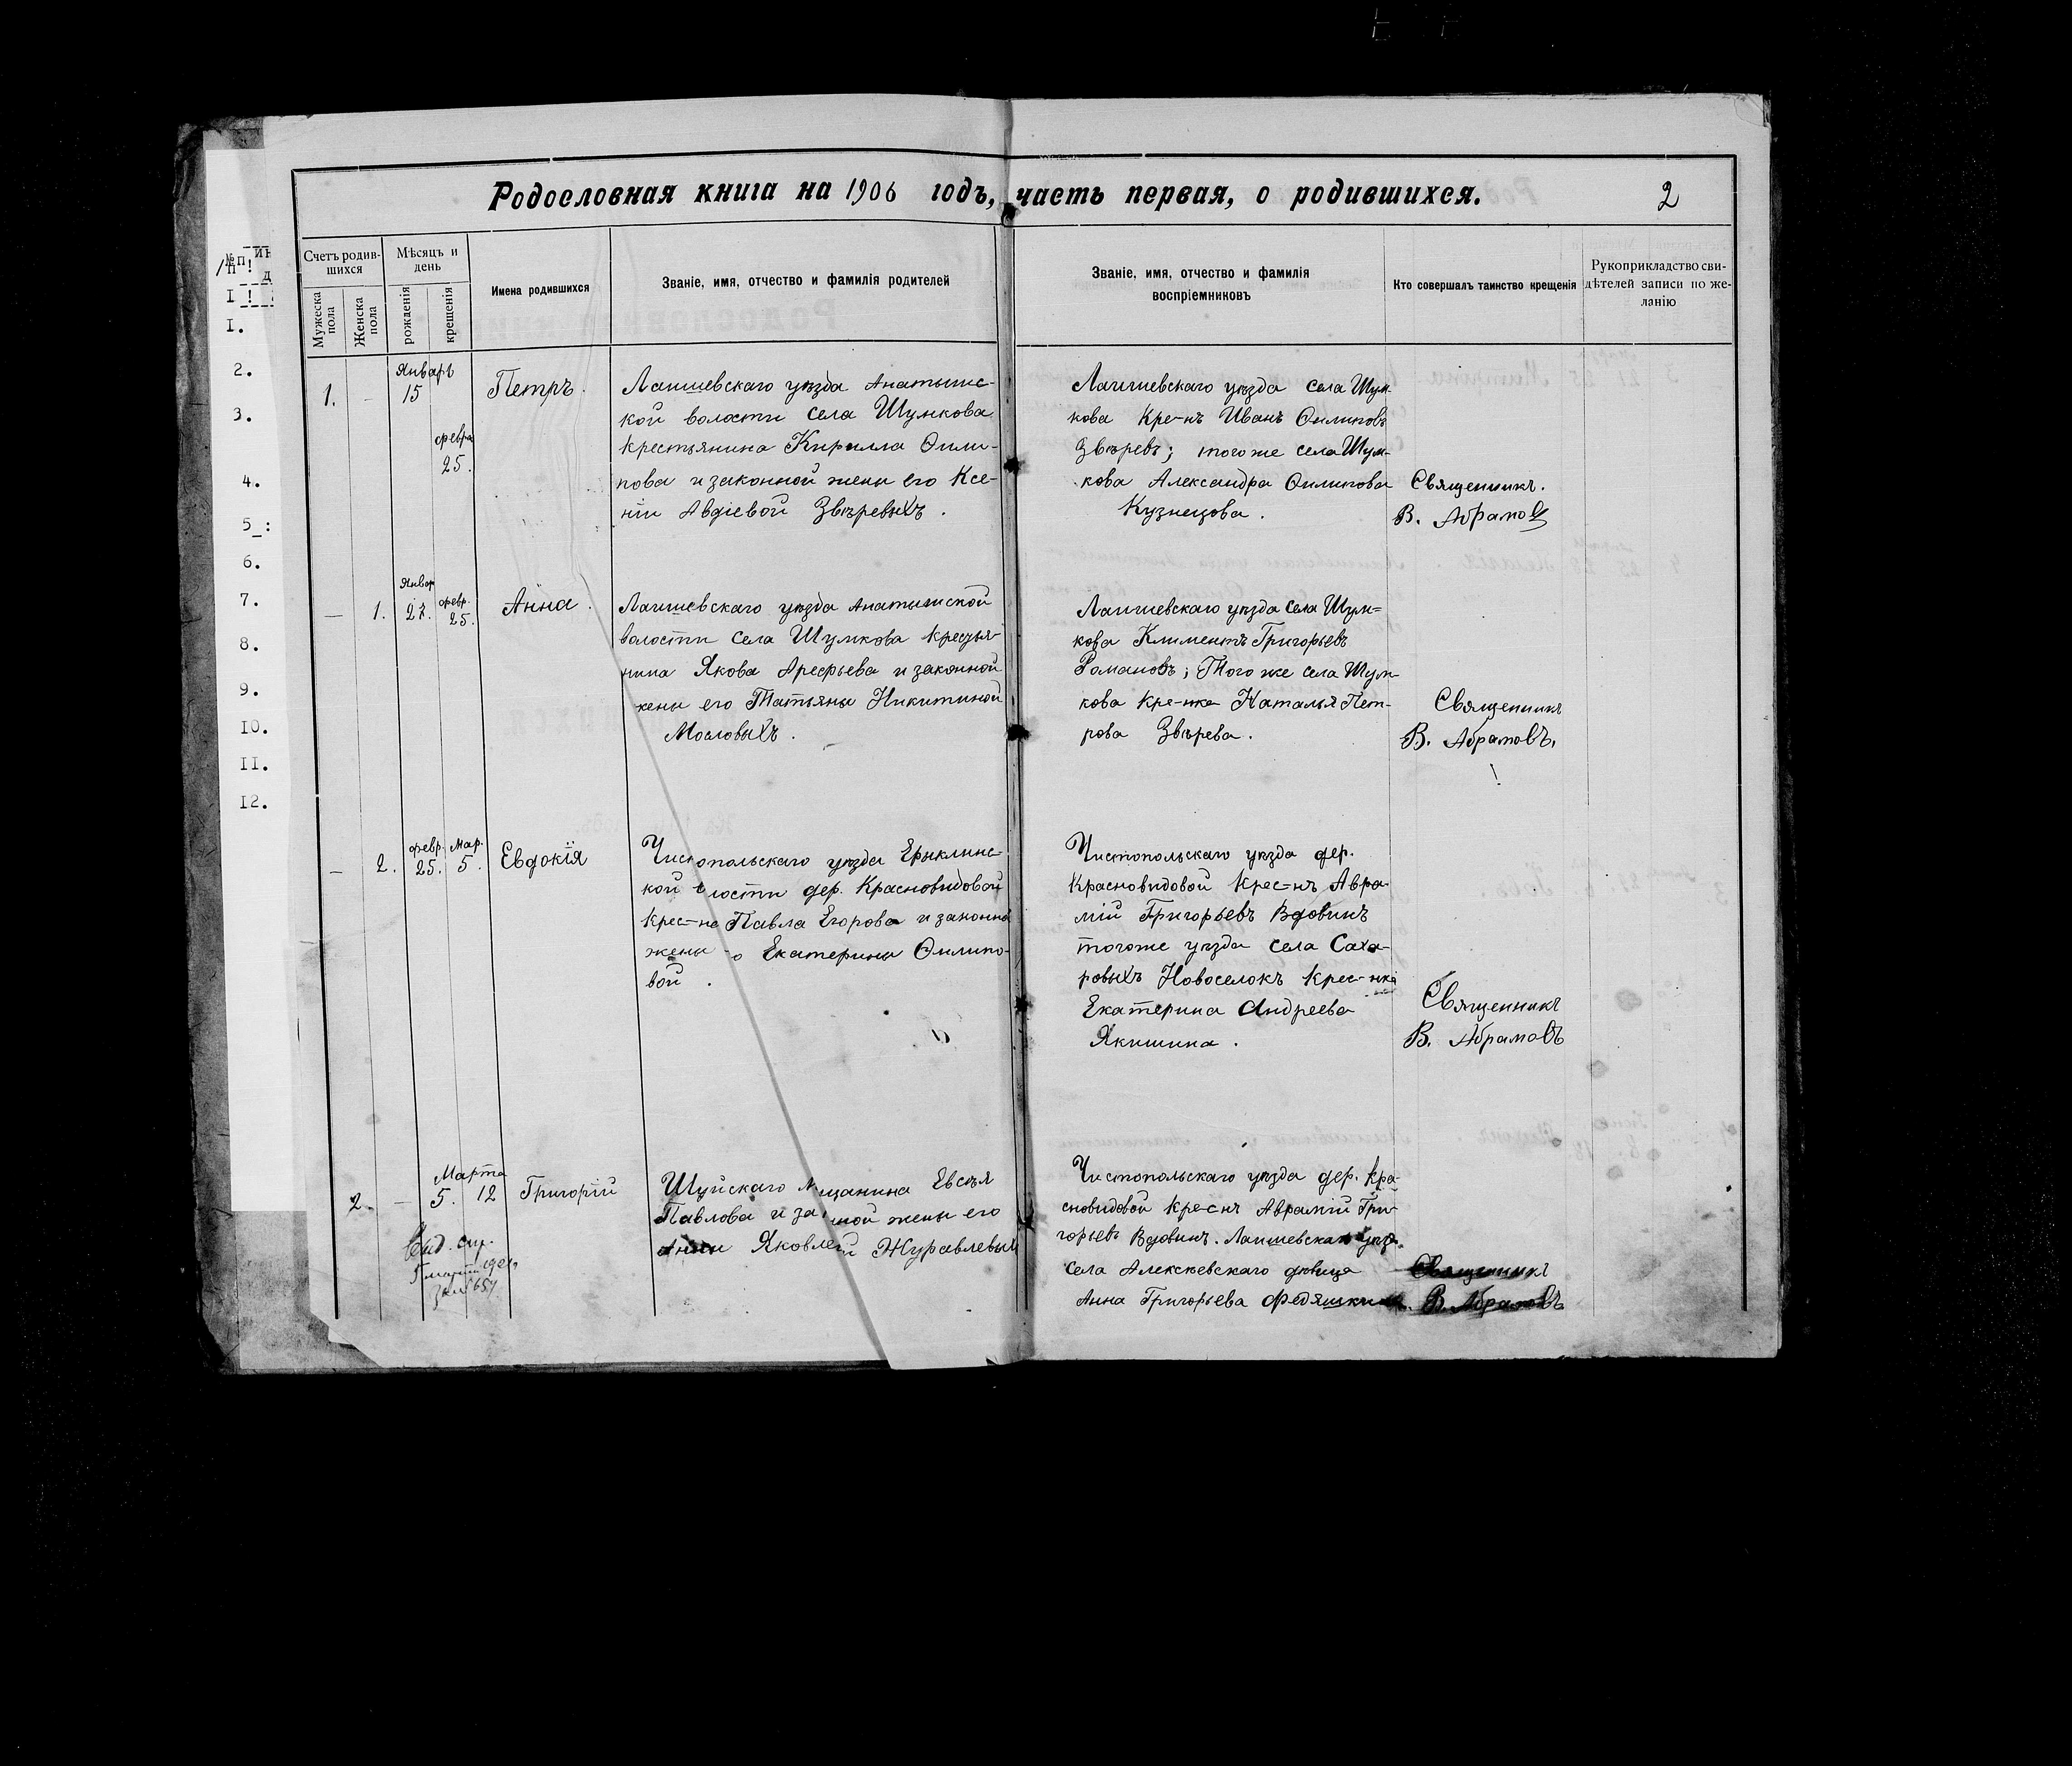 Родословная книга на 1906 годъ, часть первая, о родившихся.
2
Счетъ родив-
шихся
Мужеска пола
Женска пола
Мѣсяцъ и
день
рожденія
крещенія
Имена родившихся
Званіе, имя, отчество и фамилія родителей
Званіе, имя, отчество и фамилія
воспріемниковъ
Кто совершалъ таинство крещенія
Рукоприкладство сви-
дѣтелей записи по же-
ланію
I.
2.
3.
4.
5
6.
7.
8.
9.
10.
II.
12.
1. -
Январь
15
февра
25.
Петръ.
Лаишевскаго уѣзда Анатышс-
кой волости села Шумкова
крестьянина Кирилла Ѳили-
пова и законной жены его Ксе-
ніи Авдіевой Звѣревыхъ.
Лаишевскаго уѣзда села Шум-
кова Кре-нъ Иванъ Ѳилиповъ
Звѣревъ; тогоже села Шум-
кова Александра Ѳилипова
Кузнецова.
Священникъ.
В. Абрамовъ
- 1.
Январ
27.
февр.
25.
Анна.
Лаишевскаго уѣзда Анатышской
волости села Шумкова крестья-
нина Якова Арефьева и законной
жены его Татьяны Никитиной
Мословыхъ.
Лаишевскаго уѣзда села Шум=
кова Климентъ Григорьевъ
Романовъ; Того же села Шум-
кова кре-нка Наталья Пет-
рова Звѣрева.
Священникъ
В. Абрамовъ.
- 2.
февр.
25.
Мар.
5.
Евдокія
Чистопольскаго уѣзда Ерыклинс-
кой лости дер. Красновидовой
крес-на Павла Егорова и законно
жены о Екатерины Ѳилипо-
вой.
Чистопольскаго уѣзда дер.
Красновидовой Крес=нъ Авра-
мій Григорьевъ Вдовинъ
тогоже уѣзда села Саха-
ровыхъ Новоселокъ крес-нка
Екатерина Андреева
Якишина.
Священникъ
В. Абрамовъ
2. -
Марта
5. 12
Григорій
Шуйскаго м щанина Евсѣя
Павлова и за ной жены его
Анны Яковле й Журавлевых
Чистопольскаго уѣзда дер. Кра-
сновидовой Кре-снъ Аврамій Гри-
горьевъ Вдовинъ. Лаишевскаго уѣзд.
села Алексѣевскаго дѣвица
Анна Григорьева Федяшкин
Священникъ
В. Абрамовъ